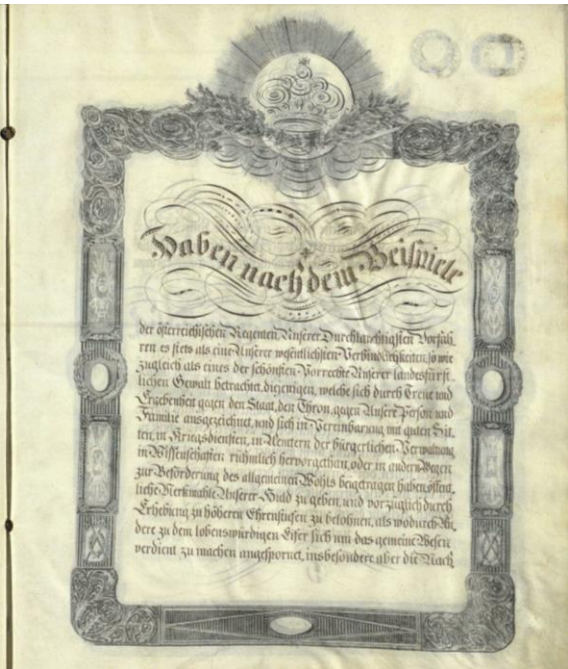 Haben nach dem Beispiele
der österreichischen Regenten Unserer Durchlauchtigsten Vorfah-
ren es stets als eine Unserer wesentlichsten Verbindlichkeiten, so wie
zugleich als eines der schönsten Vorrechte Unserer landesfürst-
lichen Gewalt betrachtet, diejenigen, welche sich durch Treue und
Ergebenheit gegen den Staat, den Thron, gegen Unsere Person und
Familie ausgezeichnet, und sich in Vereinbarung mit guten Sit-
ten, in Kriegsdiensten, in Aemtern der bürgerlichen Verwaltung
in Wissenschaften rühmlich hervorgethan, oder in andern Wegen
zur Beförderung des allgemeinen Wohls beigetragen haben, öffent-
liche Merkmahle Unserer Huld zu geben, und vorzüglich durch
Erhebung zu höheren Ehrenstufen zu belohnen, als wodurch An-
dere zu dem lobenswürdigen Eifer sich um das gemeine Wesen
verdient zu machen angespornet, insbesondere aber die Nach